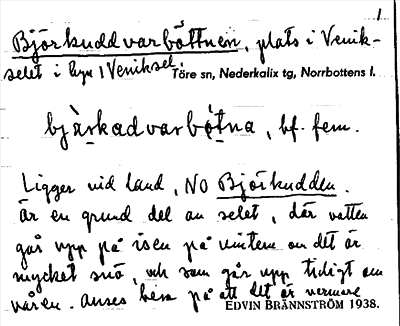 1
Björkuddvarbŏttnen, plats i Venik-
selet i byn 1 Veniksel.
Töre sn, Nederkalix tg, Norrbottens l.
bjärkadvarbotna, bf. fem.
Ligger vid land, NO Björkudden.
Är en grund del av selet, där vatten
går upp på isen på vintern om det är
mycket snö, och som går upp tidigt om
våren. Anses bero på att det är varmare
EDVIN BRÄNNSTRÖM 1938.